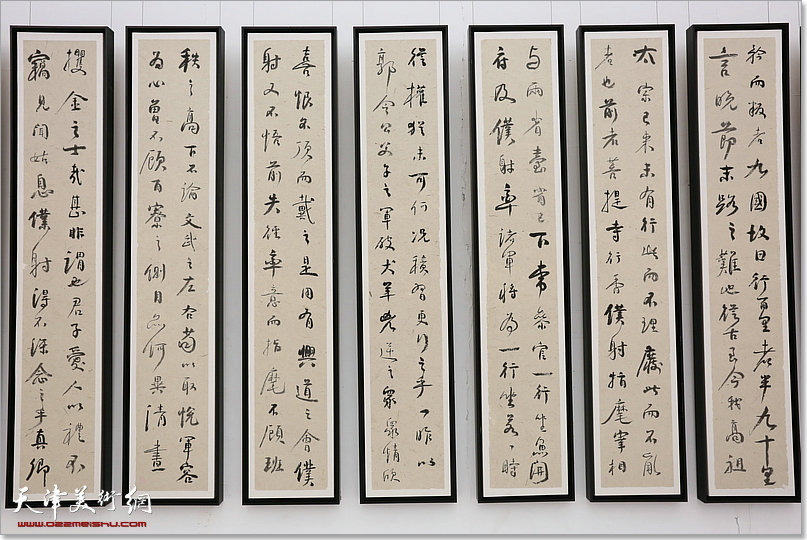 矜而叛者九國故曰行百里者半九十里
言晚節末路之難也從古至今我高祖
太宗已來未有行此而不理廢此而不亂
者也前者菩提寺行香僕射指麾宰相
与兩省臺省已下常參官一行坐魚開
府及僕射率諸軍將為一行坐若一時
從權猶未可何況積習更行之乎一昨以
郭令公父子之軍破犬羊兇逆之眾眾情欣
喜恨不頂而戴之是用有興道之會僕
射又不悟前失徑率意而指麾不顧班
秩之高下不論文武之左右苟以取悅軍容
為心曾不顧百寮之側目亦何異清晝
攫金之士哉甚非謂也君子愛人以禮不
竊見聞姑息僕射得不深念之乎真卿
天津美術網
www.022meishu.com